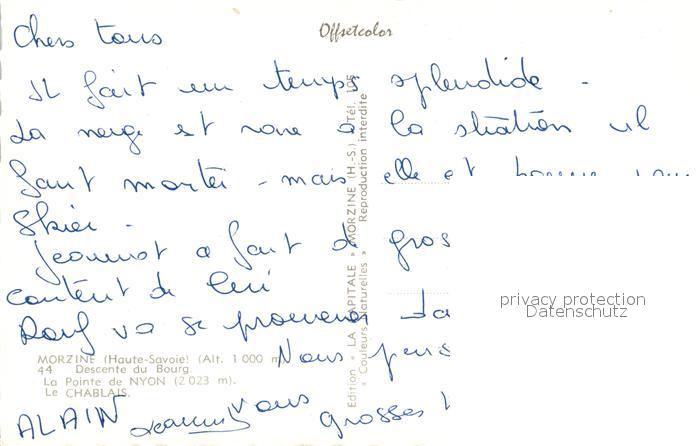 Offsetcolor
Chers tous
Il fait un temps splendide -
La neige est rare à la station il
faut monter - mais elle est bonne
skier -
Jeannot a fait de gros
content de lui
va se promener
Nous
ALAIN Jeannot vous
grosses
MORZINE (Haute-Savoie) (Alt. 1 000 m
44 Descente du Bourg.
La Pointe de NYON (2 023 m).
Le CHABLAIS.
Edition « LA CAPITALE » MORZINE (H.-S.) Tél. 105
« Couleurs Naturelles » Reproduction interdite
privacy protection
Datenschutz